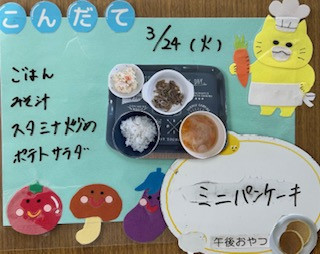 こんだて
3/24(火)
ごはん
みそ汁
スタミナ炒め
ポテトサラダ
ミニパンケーキ
午後おやつ